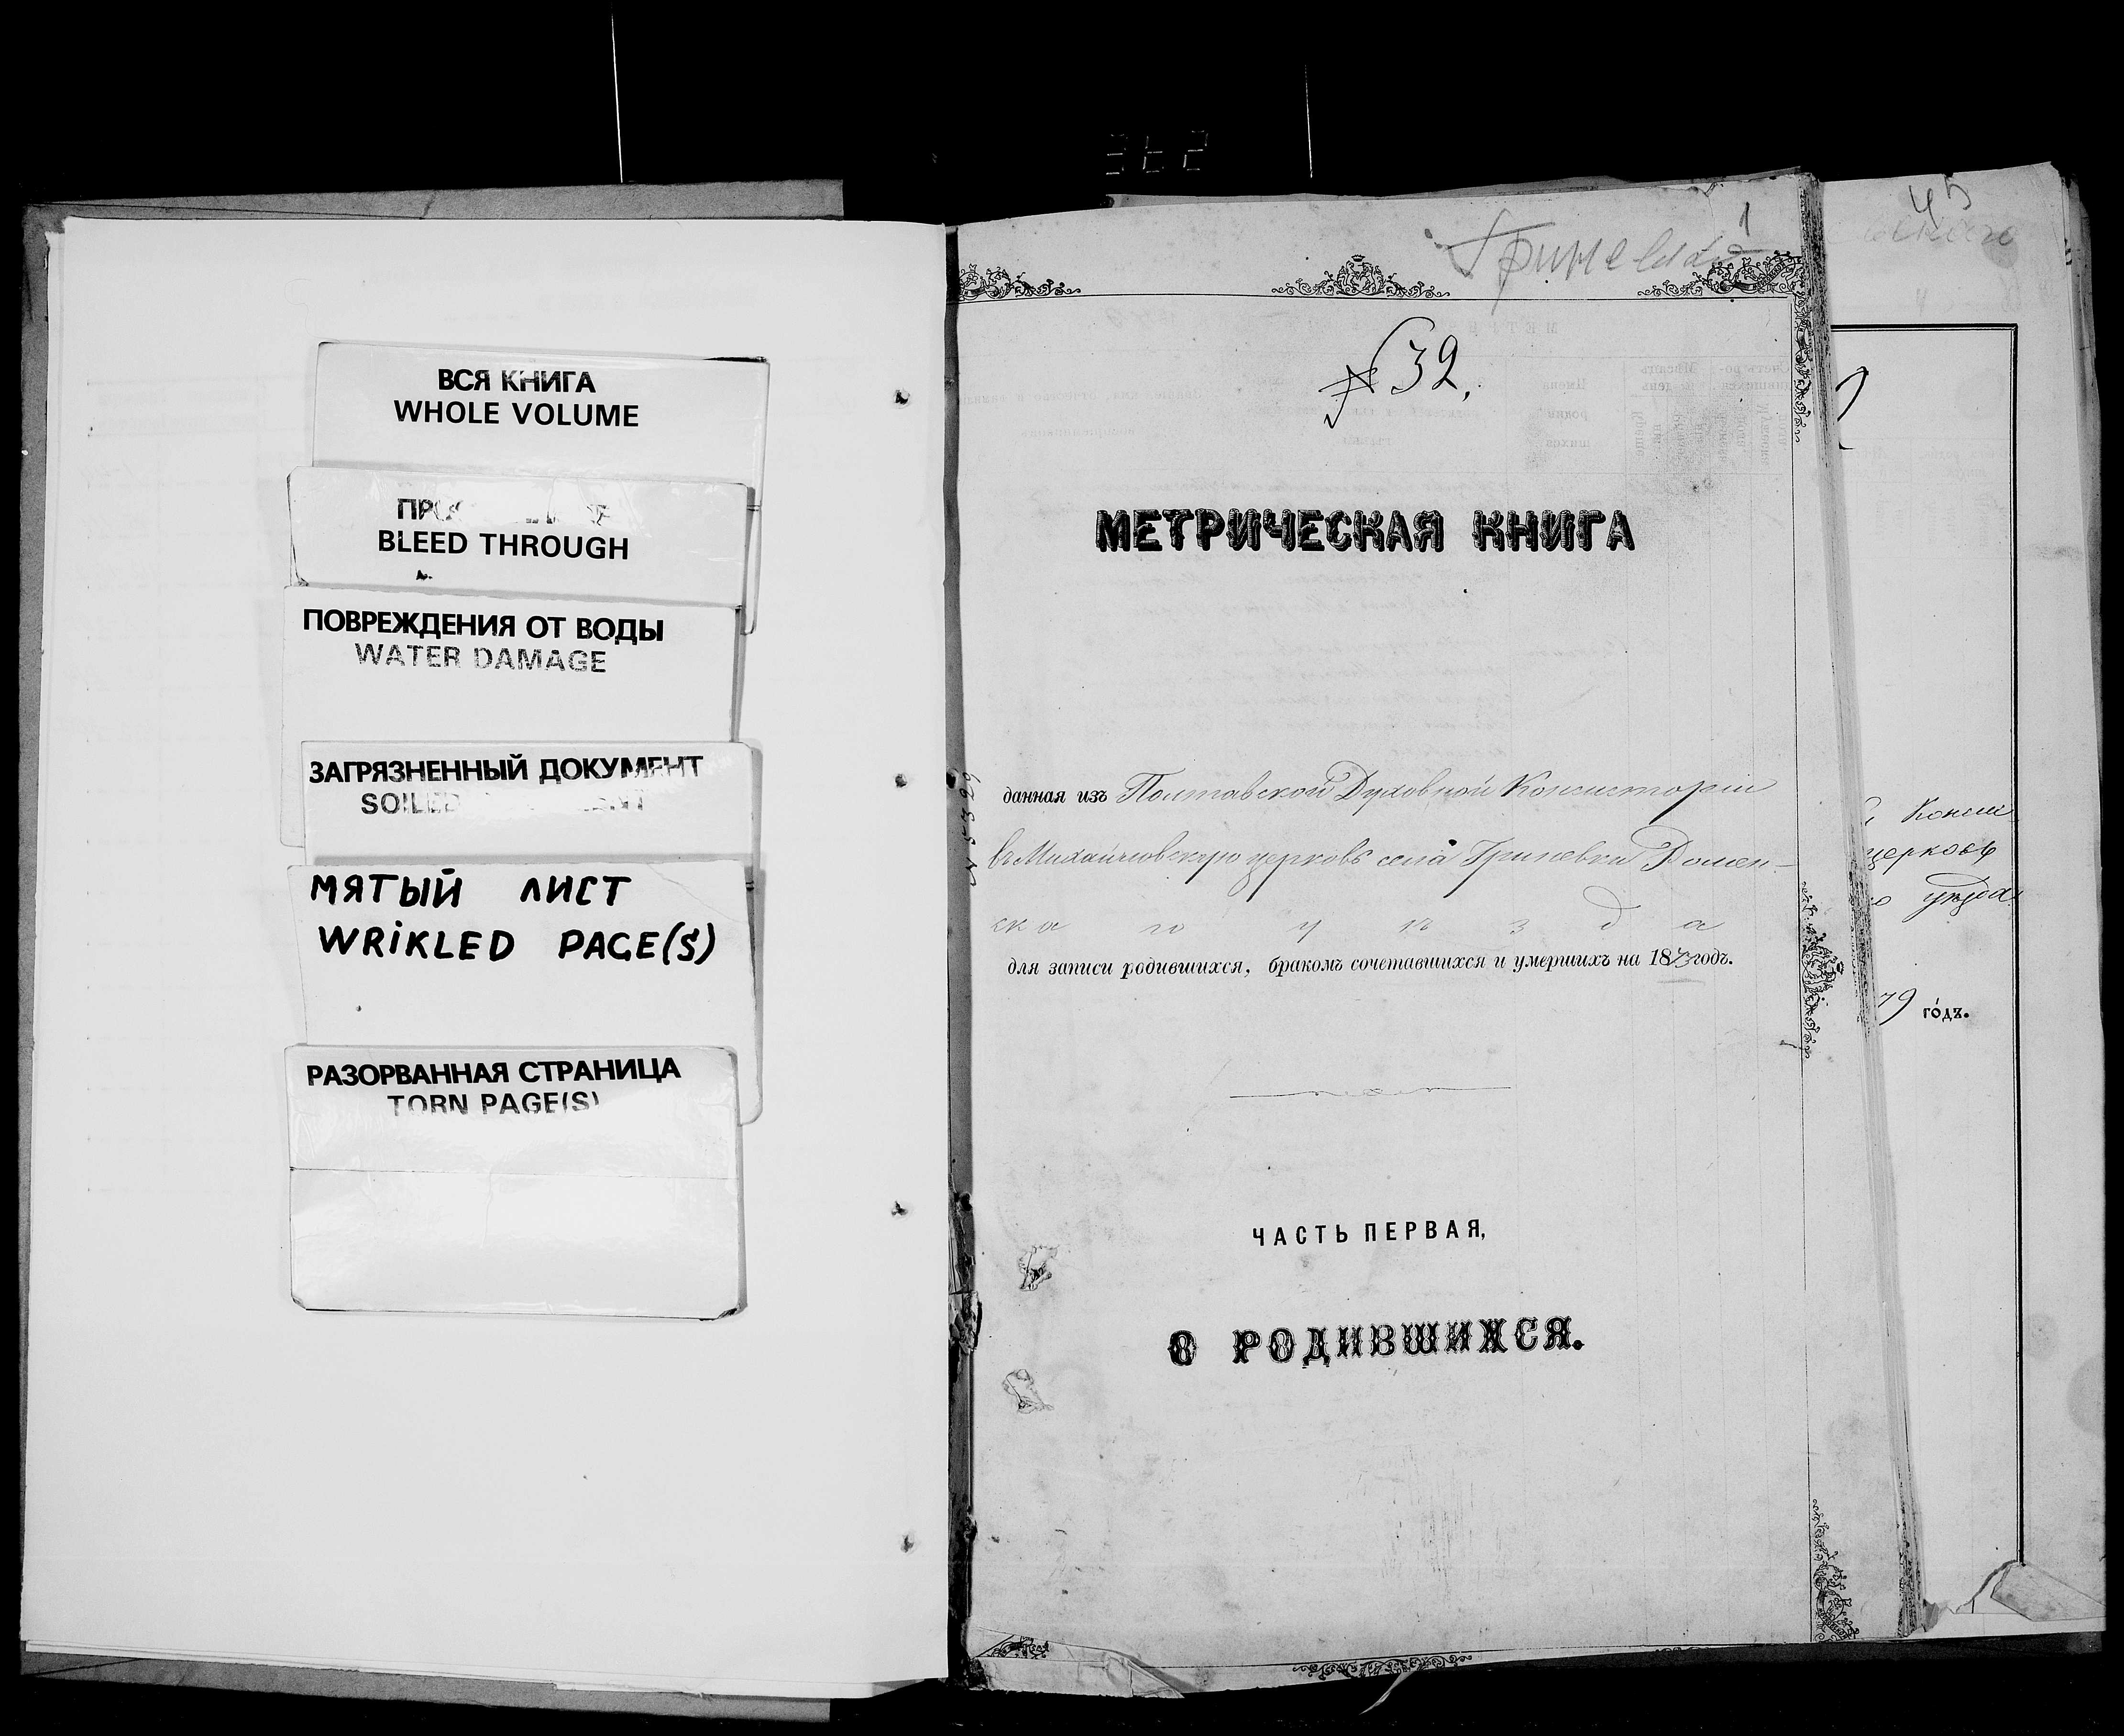 ВСЯ КНИГА
WHOLE VOLUME
BLEED THROUGH
ПОВРЕЖДЕНИЯ ОТ ВОДЫ
WATER DAMAGE
ЗАГРЯЗНЕННЫЙ ДОКУМЕНТ
SOILED
МЯТЫЙ ЛИСТ
WRIKLED PAGE(S)
РАЗОРВАННАЯ СТРАНИЦА
TORN PAGE(S)
1
№ 32.
МЕТРИЧЕСКАЯ КНИГА
данная изъ Полтавской Духовной Консисторіи
въ Михайловскую церковь села Гриневки Ромен-
ска го уѣзда
для записи родившихся, бракомъ сочетавшихся и умершихъ на 18 годъ.
ЧАСТЬ ПЕРВАЯ,
О РОДИВШИХСЯ.
45
церковь
уѣзда
79 годъ.